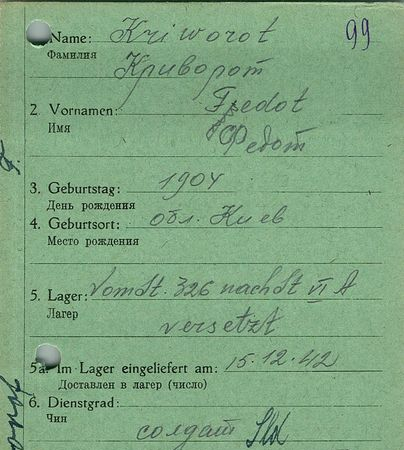 1. Name: Kriworot 99
Фамилия Криворот
2. Vornamen: Fedot
Имя Федот
3. Geburtstag: 1904
День рождения
4. Geburtsort: обл. Киев
Место рождения
5. Lager: Vom St. 326 nach St VI A
Лагер versetzt
5a. Im Lager eingeliefert am: 15.12.42
Доставлен в лагер (число)
6. Dienstgrad:
Чин солдат Sld